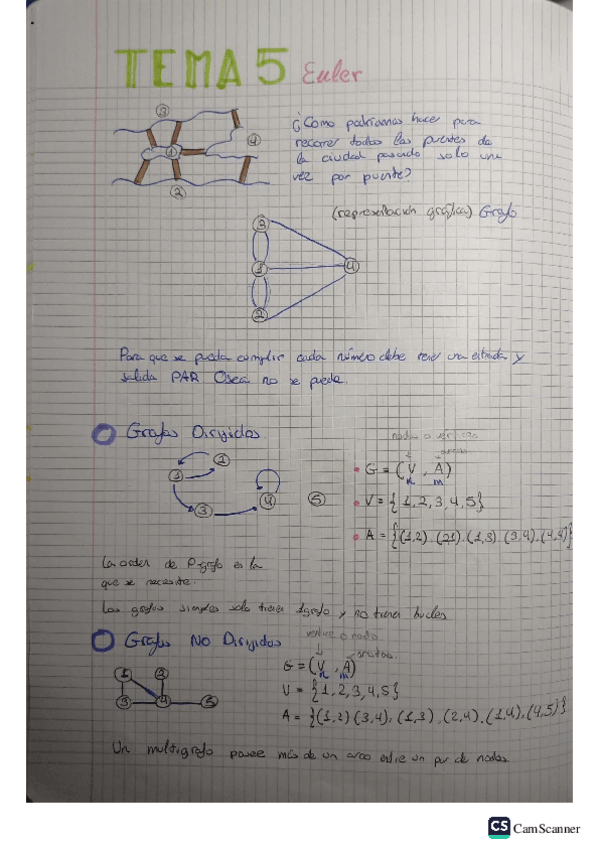 TEMA 5 Euler
3
1
4
2
¿Como podriamos hacer para
recorrer todos los puentes de
la ciudad pasando solo una
vez por puente?
(representación gráfica) Grafo
3
1
4
2
Para que se pueda cumplir cada número debe tener una entrada y
salida PAR Osea no se puede.
Grafos Dirigidos
nodos o vértices
arcos
1
1
3
4
5
G = (V, A)
n m
V = {1,2,3,4,5}
A = {(1,2).(21).(1,3).(3,4).(4,4)}
La orden de P-grafo es la
que se necesite.
Los grafos simples solo tienen 1grafo y no tienen bucles
Grafos NO Dirigidos
vertice o nodo
aristas.
1 2
3 4 5
G = (V, A)
n m
V = {1,2,3,4,5}
A = {(1,2)(3,4),(1,3),(2,4).(1,4),(4,5)}
Un multigrafo posee más de un arco entre un par de nodos.
CS CamScanner